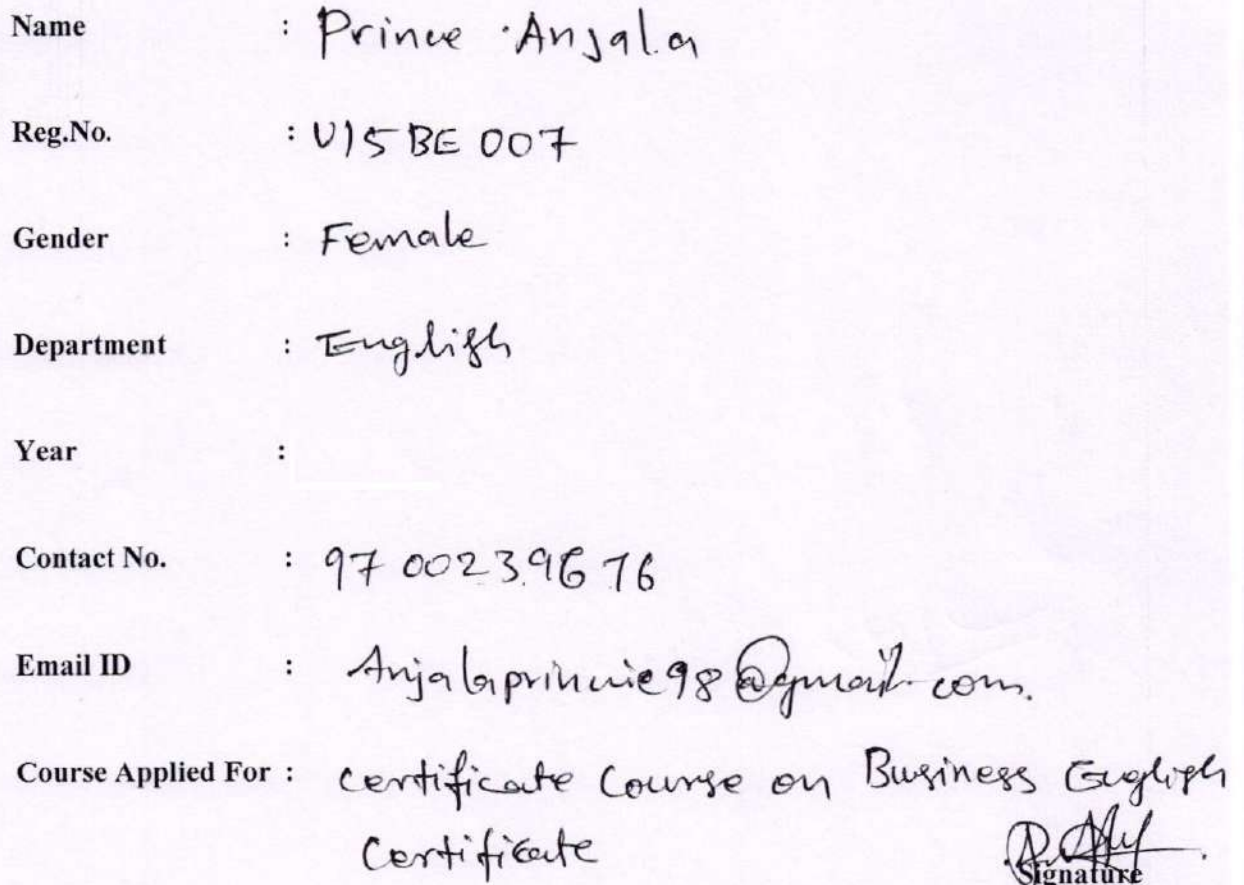 Name : Prince Anjala
Reg.No. : U15BE007
Gender : Female
Department : English
Year :
Contact No. : 9700239676
Email ID : Anjalaprincie98@gmail.com.
Course Applied For : Certificate Course on Business English
Certificate
Signature